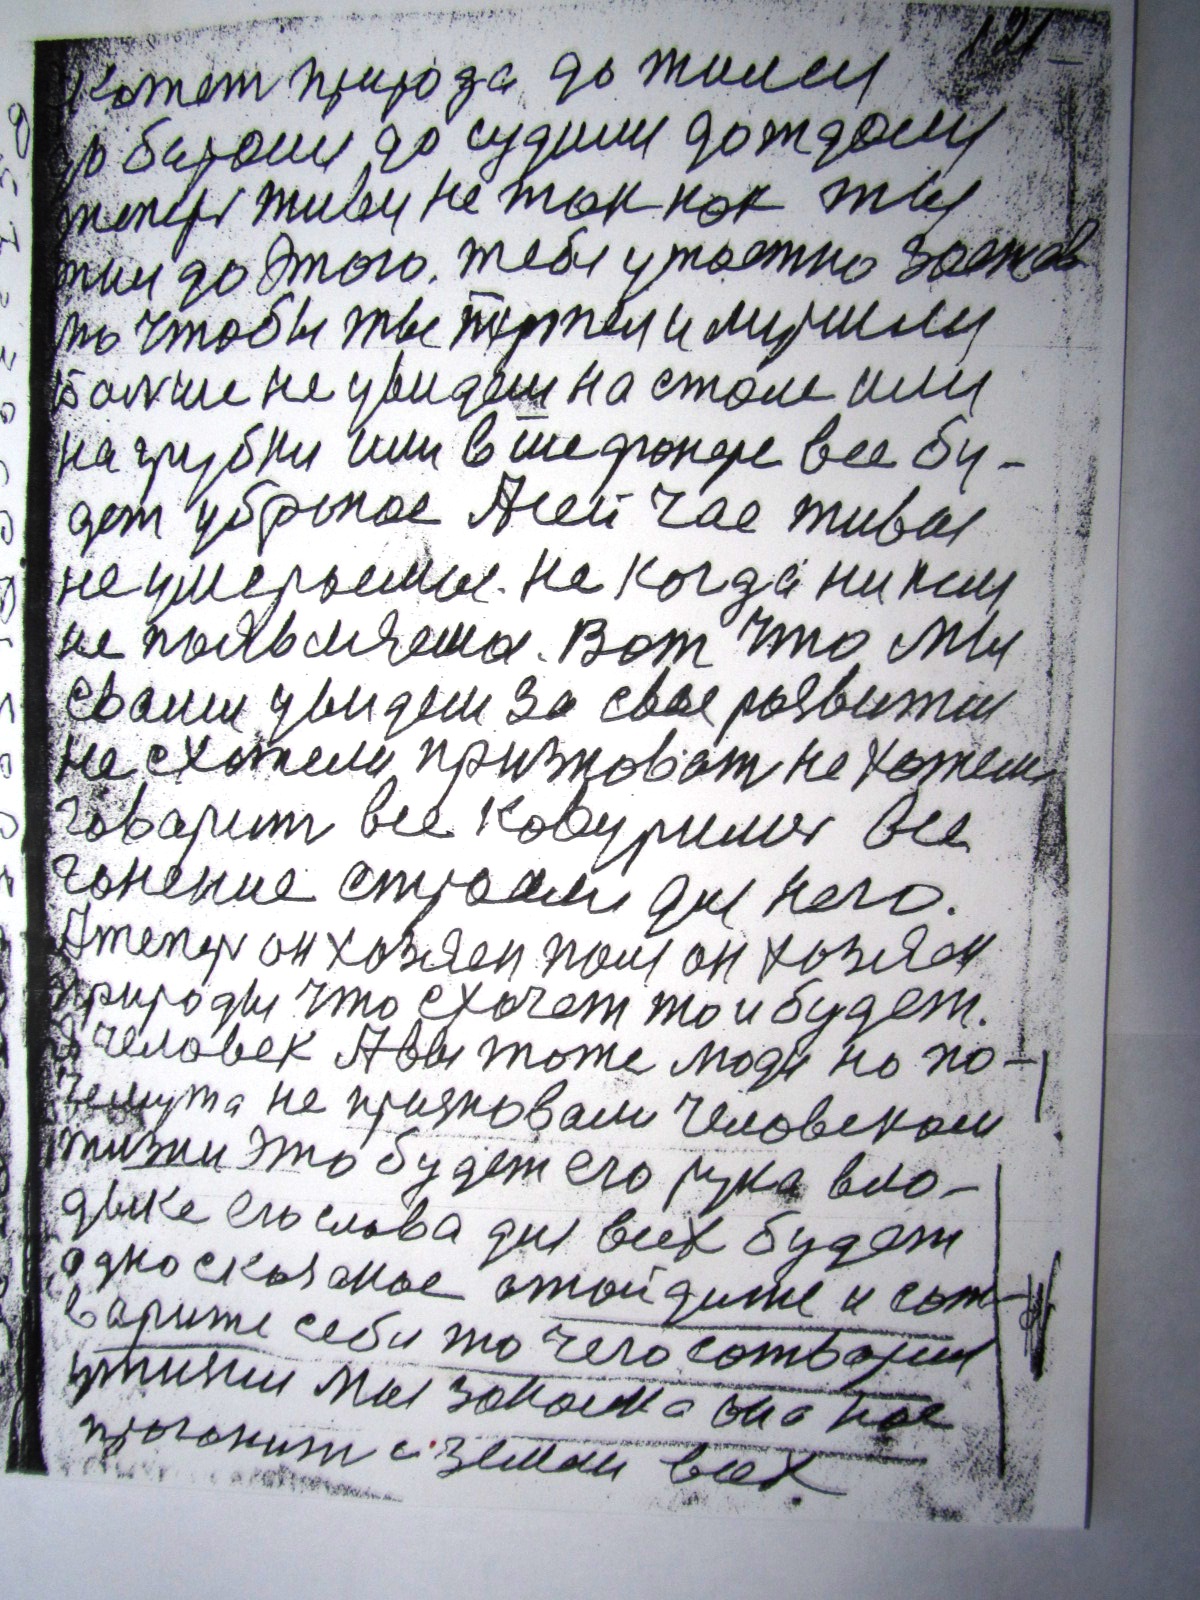 121
кажет природа дажили
до баром до судили дождали
теперь живи не так как ты
жил до этого. тебя ужасно застав
ло чтобы ты терпел и
больше не увидеш на столе или
на грубки или в шефонере все бу-
дет убраное А сей час живые
не умераемые. не когда ни кем
не появляема. Вот что мы
сваим увидели за свае развитии
не схатели признават не хатели
говарит все ковурились все
гонение страели для него.
А тепер он хазяен полю он хазяен
природы что схочет то и будет.
Я человек А вы тоже люди но по-
чемута не признавали человеком
жизни это будет его рука вло-
дыке его слова для всех будет
одно сказаное отойдите и сат-
варите себя то чего сатварил
мы законна она нас
прагонит с земли всех